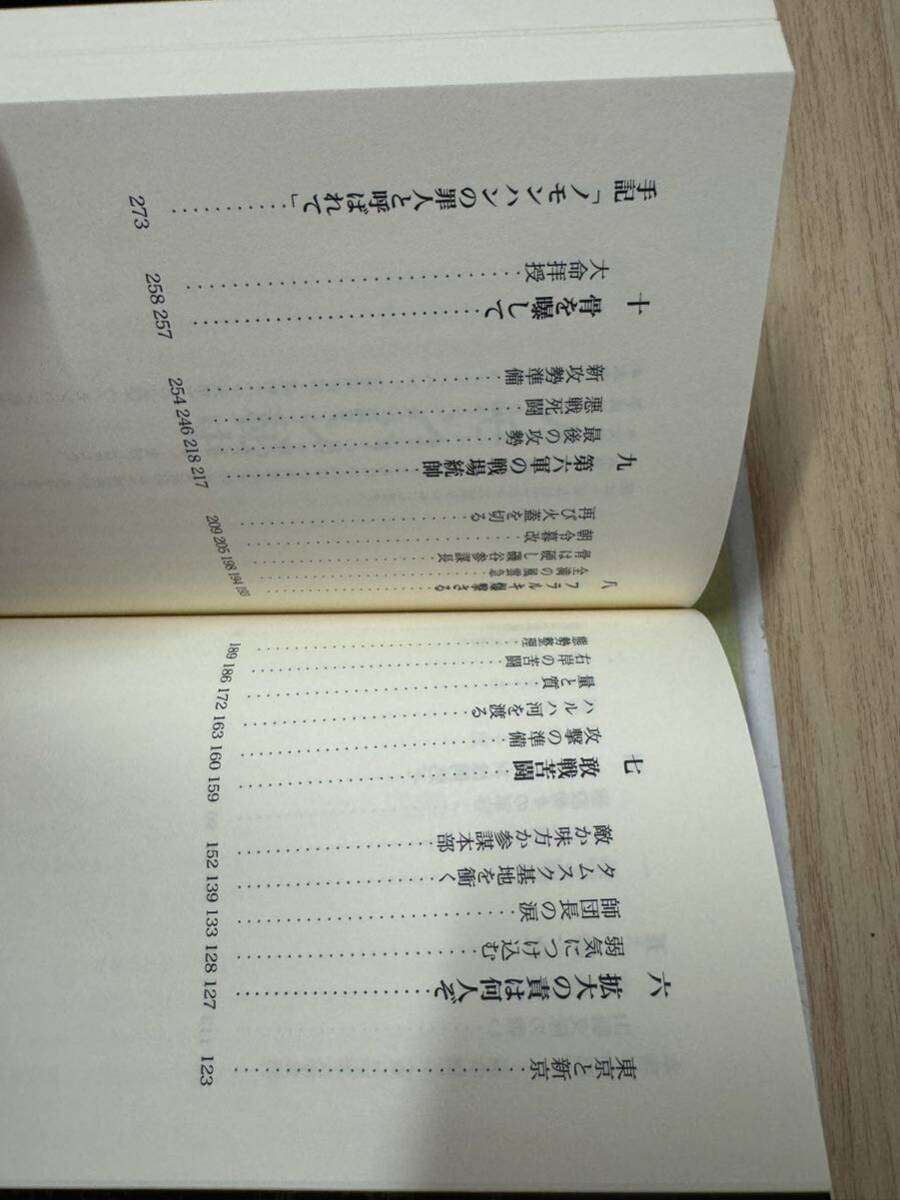 東京と新京 123
六 拡大の責は何人ぞ 127
弱気につけ込む 128
師団長の涙 133
タムスク基地を衝く 139
敵か味方か参謀本部 152
七 敢戦苦闘 159
攻撃の準備 160
ハルハ河を渡る 163
量と質 172
右岸の苦闘 186
態勢整理 189
八 フラルキ爆撃さる 193
全満の風雲急 194
骨は硬し磯谷参謀長 198
朝令暮改 205
再び火蓋を切る 209
九 第六軍の戦場統帥 217
最後の攻勢 218
悪戦死闘 246
新攻勢準備 254
十 骨を曝して 257
大命拝授 258
手記「ノモンハンの罪人と呼ばれて」 273